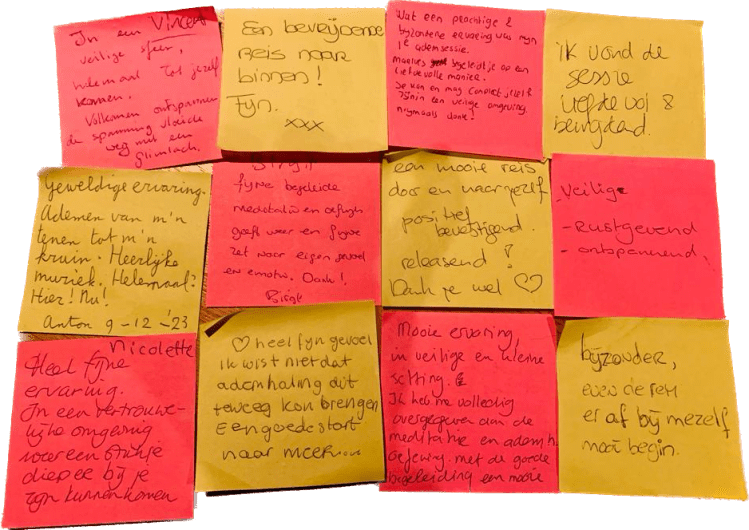 Vincent
In een
veilige sfeer,
helemaal tot jezelf
komen.
Volkomen ontspannen
de spanning vloeide
weg met een
glimlach.
Een bevrijdende
reis naar
binnen!
Fijn.
xxx
Wat een prachtige &
bijzondere ervaring was mijn
1e ademsessie.
begeleidt je op een
liefdevolle manier.
Je kan en mag compleet jezelf
zijn in een veilige omgeving.
nogmaals dank!
ik vond de
sessie
liefdevol &
Geweldige ervaring.
Ademen van m'n
tenen tot m'n
kruin. Heerlijke
muziek. Helemaal?
Hier! Nu!
Anton 9-12-'23
fijne begeleide
meditatie en
geeft weer een fijne
zet naar eigen gevoel
en emotie. Dank!
Birgit
een mooie reis
door en naar jezelf
positief
bevestigend.
releasend!
Dank je wel ♡♡
Veilige
- Rustgevend
- ontspannend,
Nicolette
Heel fijne
ervaring.
In een vertrouwe-
lijke omgeving
weer een stukje
dieper bij je
zijn kunnen komen
♡ heel fijn gevoel
ik wist niet dat
ademhaling dit
teweeg kon brengen
Een goede start
naar meer
Mooie ervaring,
in veilige en kleine
setting.
Ik heb me volledig
overgegeven aan de
meditatie en ademh.
oefening. met de goede
begeleiding een mooie
bijzonder,
even de rem
er af bij mezelf
mooi begin.